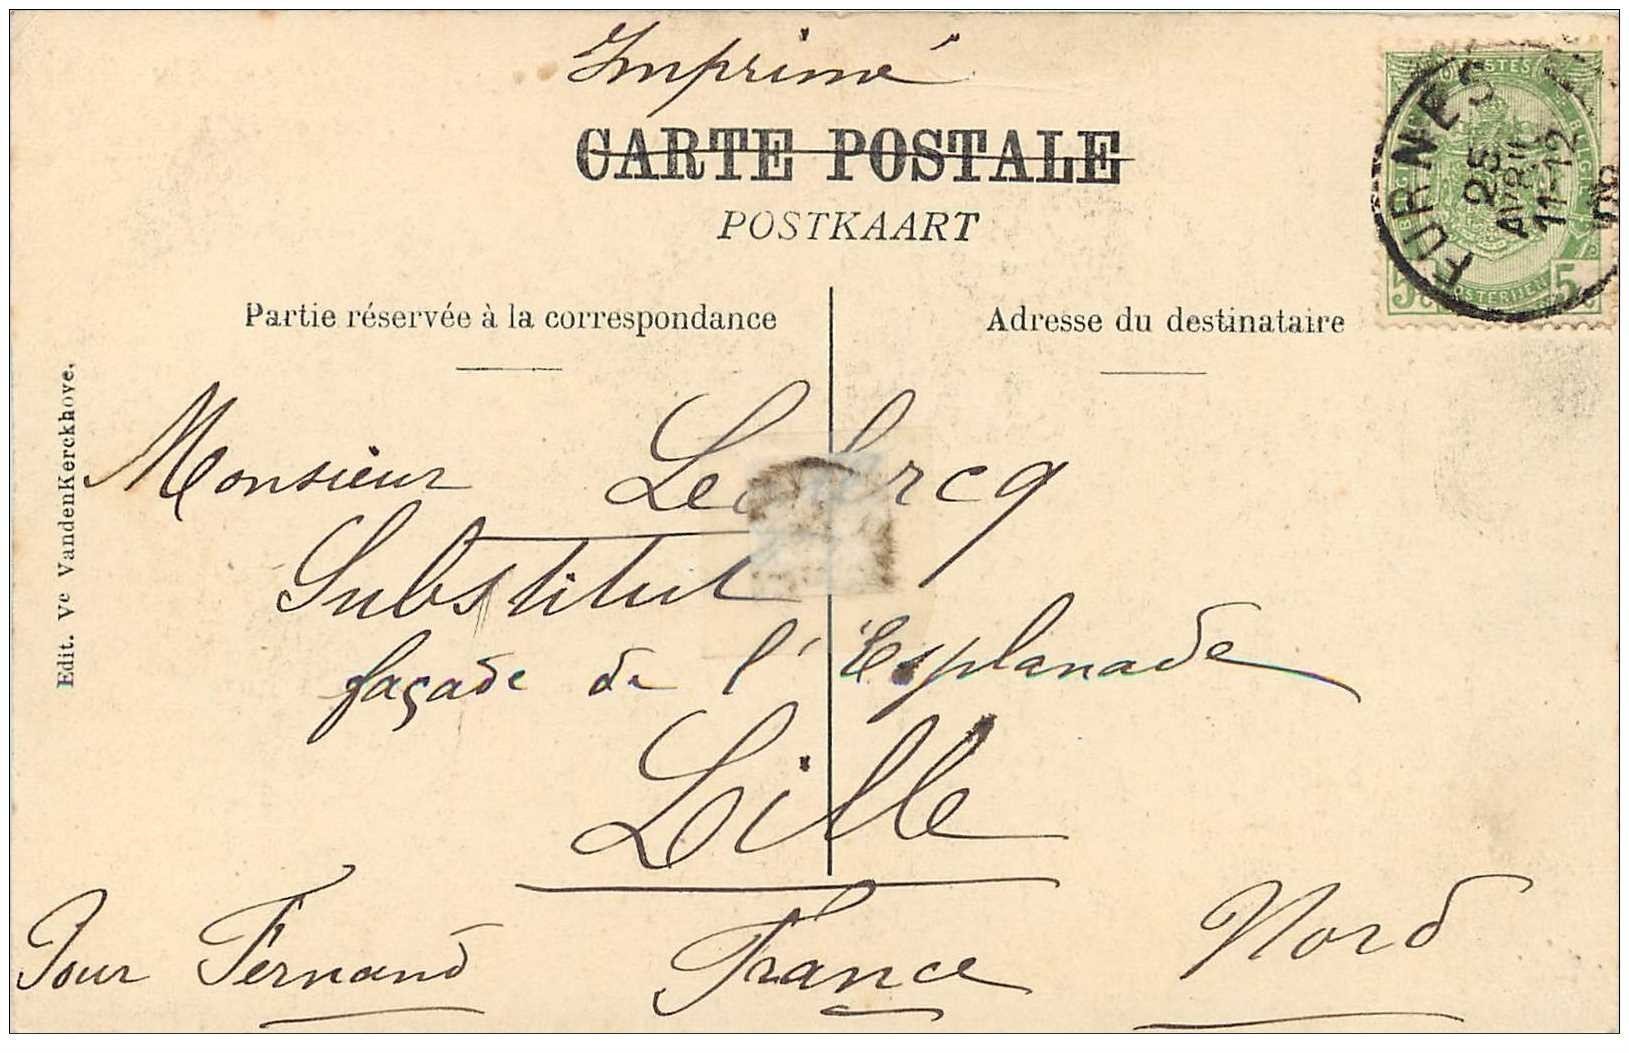 Imprimé
CARTE POSTALE
POSTKAART
Partie réservée à la correspondance
Adresse du destinataire
Edit. Ve VandenKerckhove.
FURNES
25
AVRIL
11-12
POSTES
5
5
Monsieur Leclercq
Substitut
façade de l'Esplanade
Lille
Pour Fernand France Nord